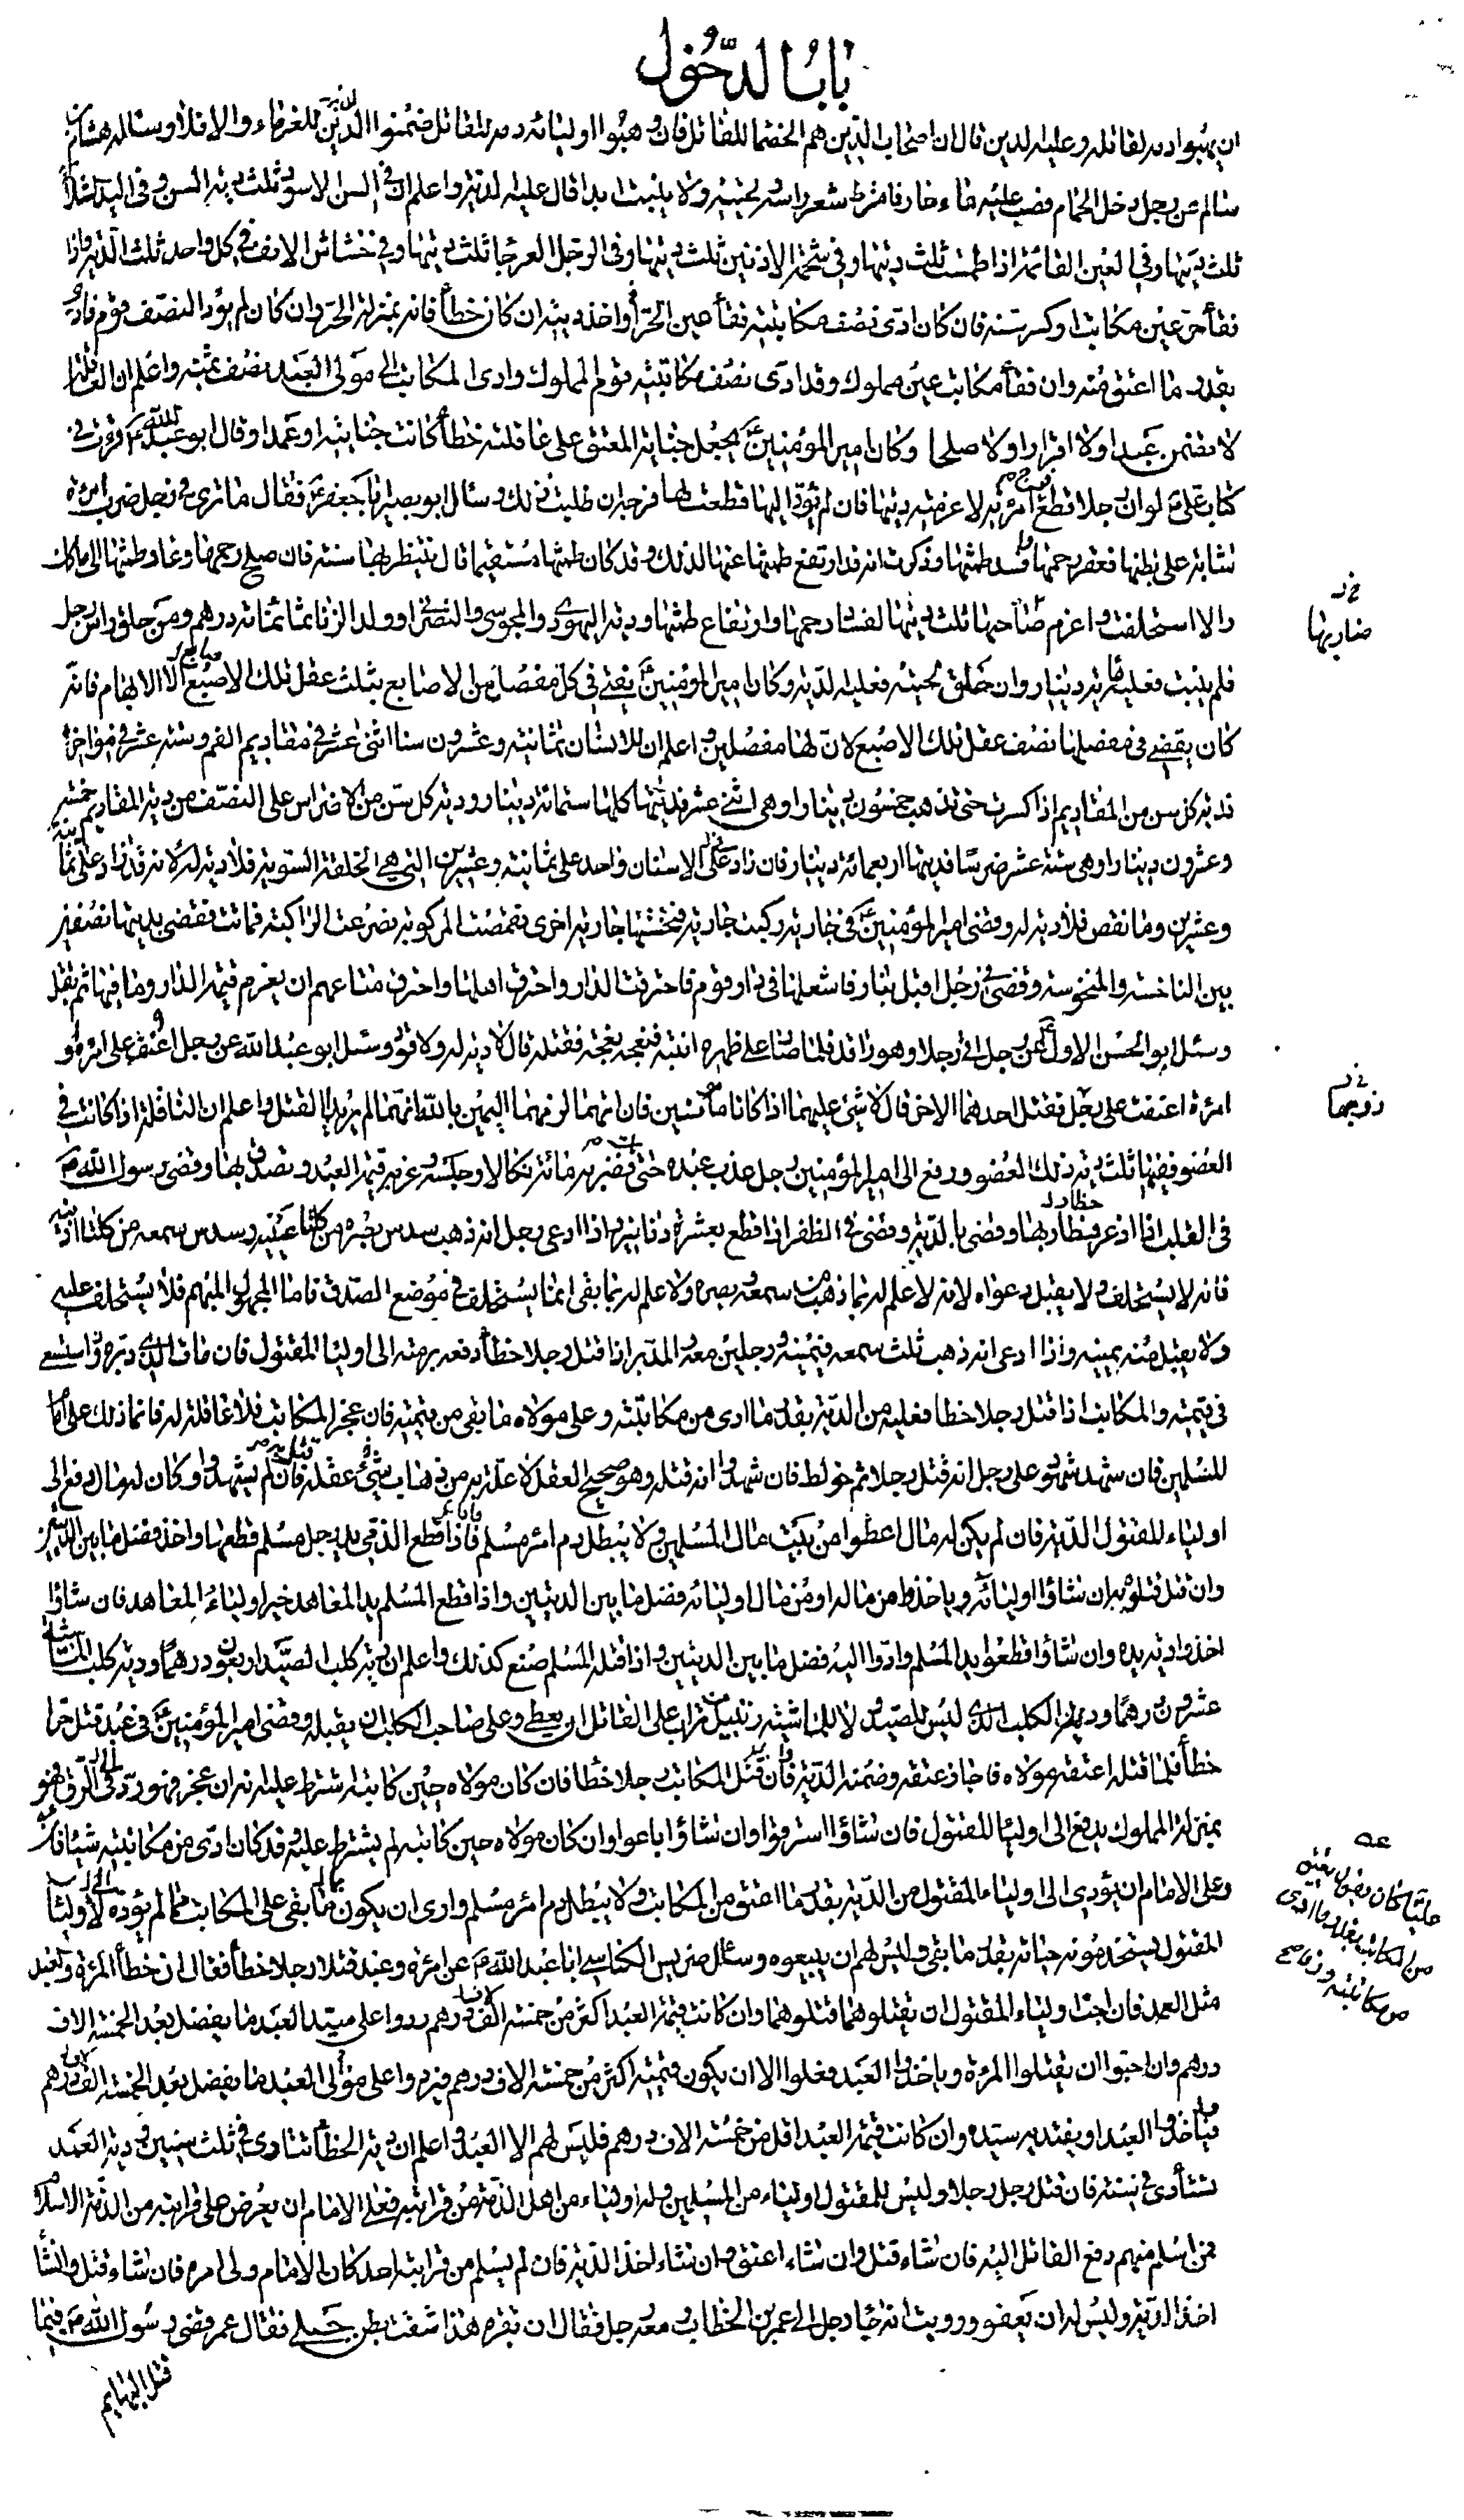 بابُ الدّخول
ان يهبوا دمه لقاتله وعليه الدين قال ان اصحاب الدين هم الخصماء للقاتل فان وهبوا اوليائه دمه للقاتل ضمنوا الدين للغرماء والا فلا وسئاله هشام بن
سالم عن رجل دخل الحمام فصب عليه ماء حار فامترط شعر راسه ولحيته ولا ينبت ابدا قال عليه الدية واعلم ان في السن الاسود ثلث دية السن وفى اليد الشلاء
ثلث ديتها وفي العين القائمة اذا طمست ثلث ديتها وفي شحمة الاذنين ثلث ديتها وفى الرجل العرجا ثلث ديتها وفي خشاش الانف في كل واحد ثلث الدية واذا
فقأ حر عين مكاتب او كسر سنه فان كان ادى نصف مكاتبته فقأ عين الحر او اخذ ديته ان كان خطأ فانه بمنزلة الحر وان كان لم يؤد النصف قوم فادى
بقدر ما اعتق منه وان فقأ مكاتب عين مملوك وقد ادى نصف مكاتبته قوم المملوك وادى المكاتب الى مولى العبد نصف ثمنه واعلم ان العاقلة
لا تضمن عبدا ولا اقرارا ولا صلحا وكان امير المؤمنين ع يجعل جناية المعتق على عاقلته خطأ كانت جنايته او عمدا وقال ابو عبد الله ع قرات في
كتاب علي ع لو ان رجلا قطع امرئة لاغرمته ديتها فان لم يؤد اليها قطعت لها فرجه ان طلبت ذلك وسئال ابو بصير ابا جعفر ع فقال ما ترى في رجل ضرب امرئة
شابة على بطنها فعقر رحمها وافسد طمثها وذكرت انه قد ارتفع طمثها عنها لذلك وقد كان طمثها مستقيما قال ينتظر بها سنة فان صلح رحمها وعاد طمثها الى ما كان
والا استحلفت واغرم ضاربها ثلث ديتها لفساد رحمها وارتفاع طمثها ودية اليهودي والمجوسي والنصراني وولد الزنا ثمانمائة درهم ومن حلق راس رجل
فلم ينبت فعليه مائة دينار وان حلق لحيته فعليه الدية وكان امير المؤمنين ع يقضي في كل مفصل من الاصابع بثلث عقل تلك الاصبع الا الابهام فانه
كان يقضي في مفصلها نصف عقل تلك الاصبع لان لها مفصلين واعلم ان للانسان ثمانية وعشرون سنا اثنى عشر في مقاديم الفم وستة عشر في مواخره
فدية كل سن من المقاديم اذا كسرت حتى تذهب خمسون دينارا وهي اثنى عشر فديتها كلها ستمائة دينار ودية كل سن من الاضراس على النصف من دية المقاديم خمسة
وعشرون دينارا وهى ستة عشر ضرسا فديتها اربعمائة دينار فان زاد على الاسنان واحد على ثمانية وعشرين التي هي الخلقة السوية فلا دية له لانه قد زاد على ثمانية
وعشرين وما نقص فلا دية له وقضى امير المؤمنين ع في جارية ركبت جارية فنخستها جارية اخرى فقمصت المركوبة فصرعت الراكبة فماتت فقضى بديتها نصفين
بين الناخسة والمنخوسة وقضى في رجل اقبل بنار فاشعلها فى دار قوم فاحترقت الدار واحترق اهلها واحترق متاعهم ان يغرم قيمة الدار وما فيها ثم يقتل
وسئل ابو الحسن الاول ع عن رجل اتى رجلا وهو راقد فلما صار على ظهره انتبه فبعجه بعجة فقتله قال لا دية له ولا قود وسئل ابو عبد الله عن رجل اعنف على امرئة او
امرئة اعنفت على رجل فقتل احدهما الاخر قال لا شئ عليهما اذا كانا مامونين فان اتهما لزمهما اليمين بالله انهما لم يريدا القتل واعلم ان النافلة اذا كانت في
العضو ففيها ثلث دية ذلك العضو ورفع الى امير المؤمنين رجل عذب عبده حتى مات فضربه مائة نكالا وحبسه وغرمه قيمة العبد وتصدق بها وقضى رسول الله ص
فى القلب اذا ذعر فطار بها وقضى بالدية وقضى في الظفر اذا قطع بعشرة دنانير اذا ادعى رجل انه ذهب سدس بصره من كلتا عينيه وسدس سمعه من كلتا اذنيه
فانه لا يستحلف ولا يقبل دعواه لانه لا علم له بما ذهب من سمعه وبصره ولا علم له بما بقى انما يستحلف في موضع الصدق فاما المجهول المبهم فلا يستحلف عليه
ولا يقبل منه يمينه واذا ادعى انه ذهب ثلث سمعه فيمينه ورجلين معه والمدبر اذا قتل رجلا خطأ دفعه برمته الى اوليا المقتول فان مات الذي دبره استسعى
فى قيمته والمكاتب اذا قتل رجلا خطا فعليه من الدية بقدر ما ادى من مكاتبته وعلى مولاه ما بقى من قيمته فان عجز المكاتب فلا عاقلة له فانما ذلك على امام
المسلمين فان شهد شهود على رجل انه قتل رجلا ثم خولط فان شهدوا انه قتله وهو صحيح العقل لا علة به من ذهاب عقله قتل به فان لم يشهدوا وكان له مال دفع الى
اولياء المقتول الدية فان لم يكن له مال اعطوا من بيت مال المسلمين ولا يبطل دم امرء مسلم فاذا قطع الذمي يد رجل مسلم قطعها واخذ فضل ما بين الديتين
وان قتل قتلوه به ان شاؤا اوليائه وياخذوا من ماله او من مال اوليائه فضل ما بين الديتين واذا قطع المسلم يد المعاهد خير اولياء المعاهد فان شاؤا
اخذوا دية يده وان شاؤا قطعوا يد المسلم وادوا اليه فضل ما بين الديتين واذا قتله المسلم صنع كذلك واعلم ان دية كلب الصيد اربعون درهما ودية كلب الماشية
عشرون درهما ودية الكلب الذي ليس للصيد ولا للماشية زنبيل من تراب على القاتل ان يعطي وعلى صاحب الكلب ان يقبله وقضى امير المؤمنين ع في عبد قتل حرا
خطأ فلما قتله اعتقه مولاه فاجاز عتقه وضمنه الدية وان قتل المكاتب رجلا خطأ فان كان مولاه حين كاتبه اشترط عليه انه ان عجز فهو رد الى الرق فهو
بمنزلة المملوك يدفع الى اولياء المقتول فان شاؤا استرقوا وان شاؤا باعوا وان كان مولاه حين كاتبه لم يشترط عليه وقد كان ادى من مكاتبته شيئا فان
وعلى الامام ان يؤدي الى اولياء المقتول من الدية بقدر ما اعتق من المكاتب ولا يبطل دم امرء مسلم وارى ان يكون ما بقى على المكاتب مما لم يؤده لاولياء
المقتول يستخدمونه حياته بقدر ما بقى وليس لهم ان يبيعوه وسئال ضريس الكناسي ابا عبد الله ع عن امرئة وعبد قتلا رجلا خطأ فقال ان خطأ المرئة والعبد
مثل العمد فان احب اولياء المقتول ان يقتلوهما قتلوهما وان كانت قيمة العبد اكثر من خمسة الاف درهم ردوا على سيد العبد ما يفضل بعد الخمسة الاف
درهم وان احبوا ان يقتلوا المرئة وياخذوا العبد فعلوا الا ان يكون قيمته اكثر من خمسة الاف درهم فيردوا على مولى العبد ما يفضل بعد الخمسة الاف درهم
فياخذوا العبد او يفتديه سيده وان كانت قيمة العبد اقل من خمسة الاف درهم فليس لهم الا العبد واعلم ان دية الخطأ تتادى في ثلث سنين ودية العمد
تستأدى في سنة فان قتل رجل رجلا وليس للمقتول اولياء من المسلمين وله اولياء من اهل الذمة من قرابته فعلى الامام ان يعرض على قرابته من الذمة الاسلام
فمن اسلم منهم دفع القاتل اليه فان شاء قتل وان شاء اعتق وان شاء اخذ الدية فان لم يسلم من قرابته احد كان الامام ولى امره فان شاء قتل وان شاء
اخذ الدية وليس له ان يعفو ورويت انه جاء رجل الى عمر بن الخطاب ومعه رجل فقال ان بقرة هذا شقت بطن جملي فقال عمر قضى رسول الله ص فيما
قتل البهايم
ضاربها
زوجها
عليا كان يقول يعتق
من المكاتب بقدر ما ادى
من مكاتبته